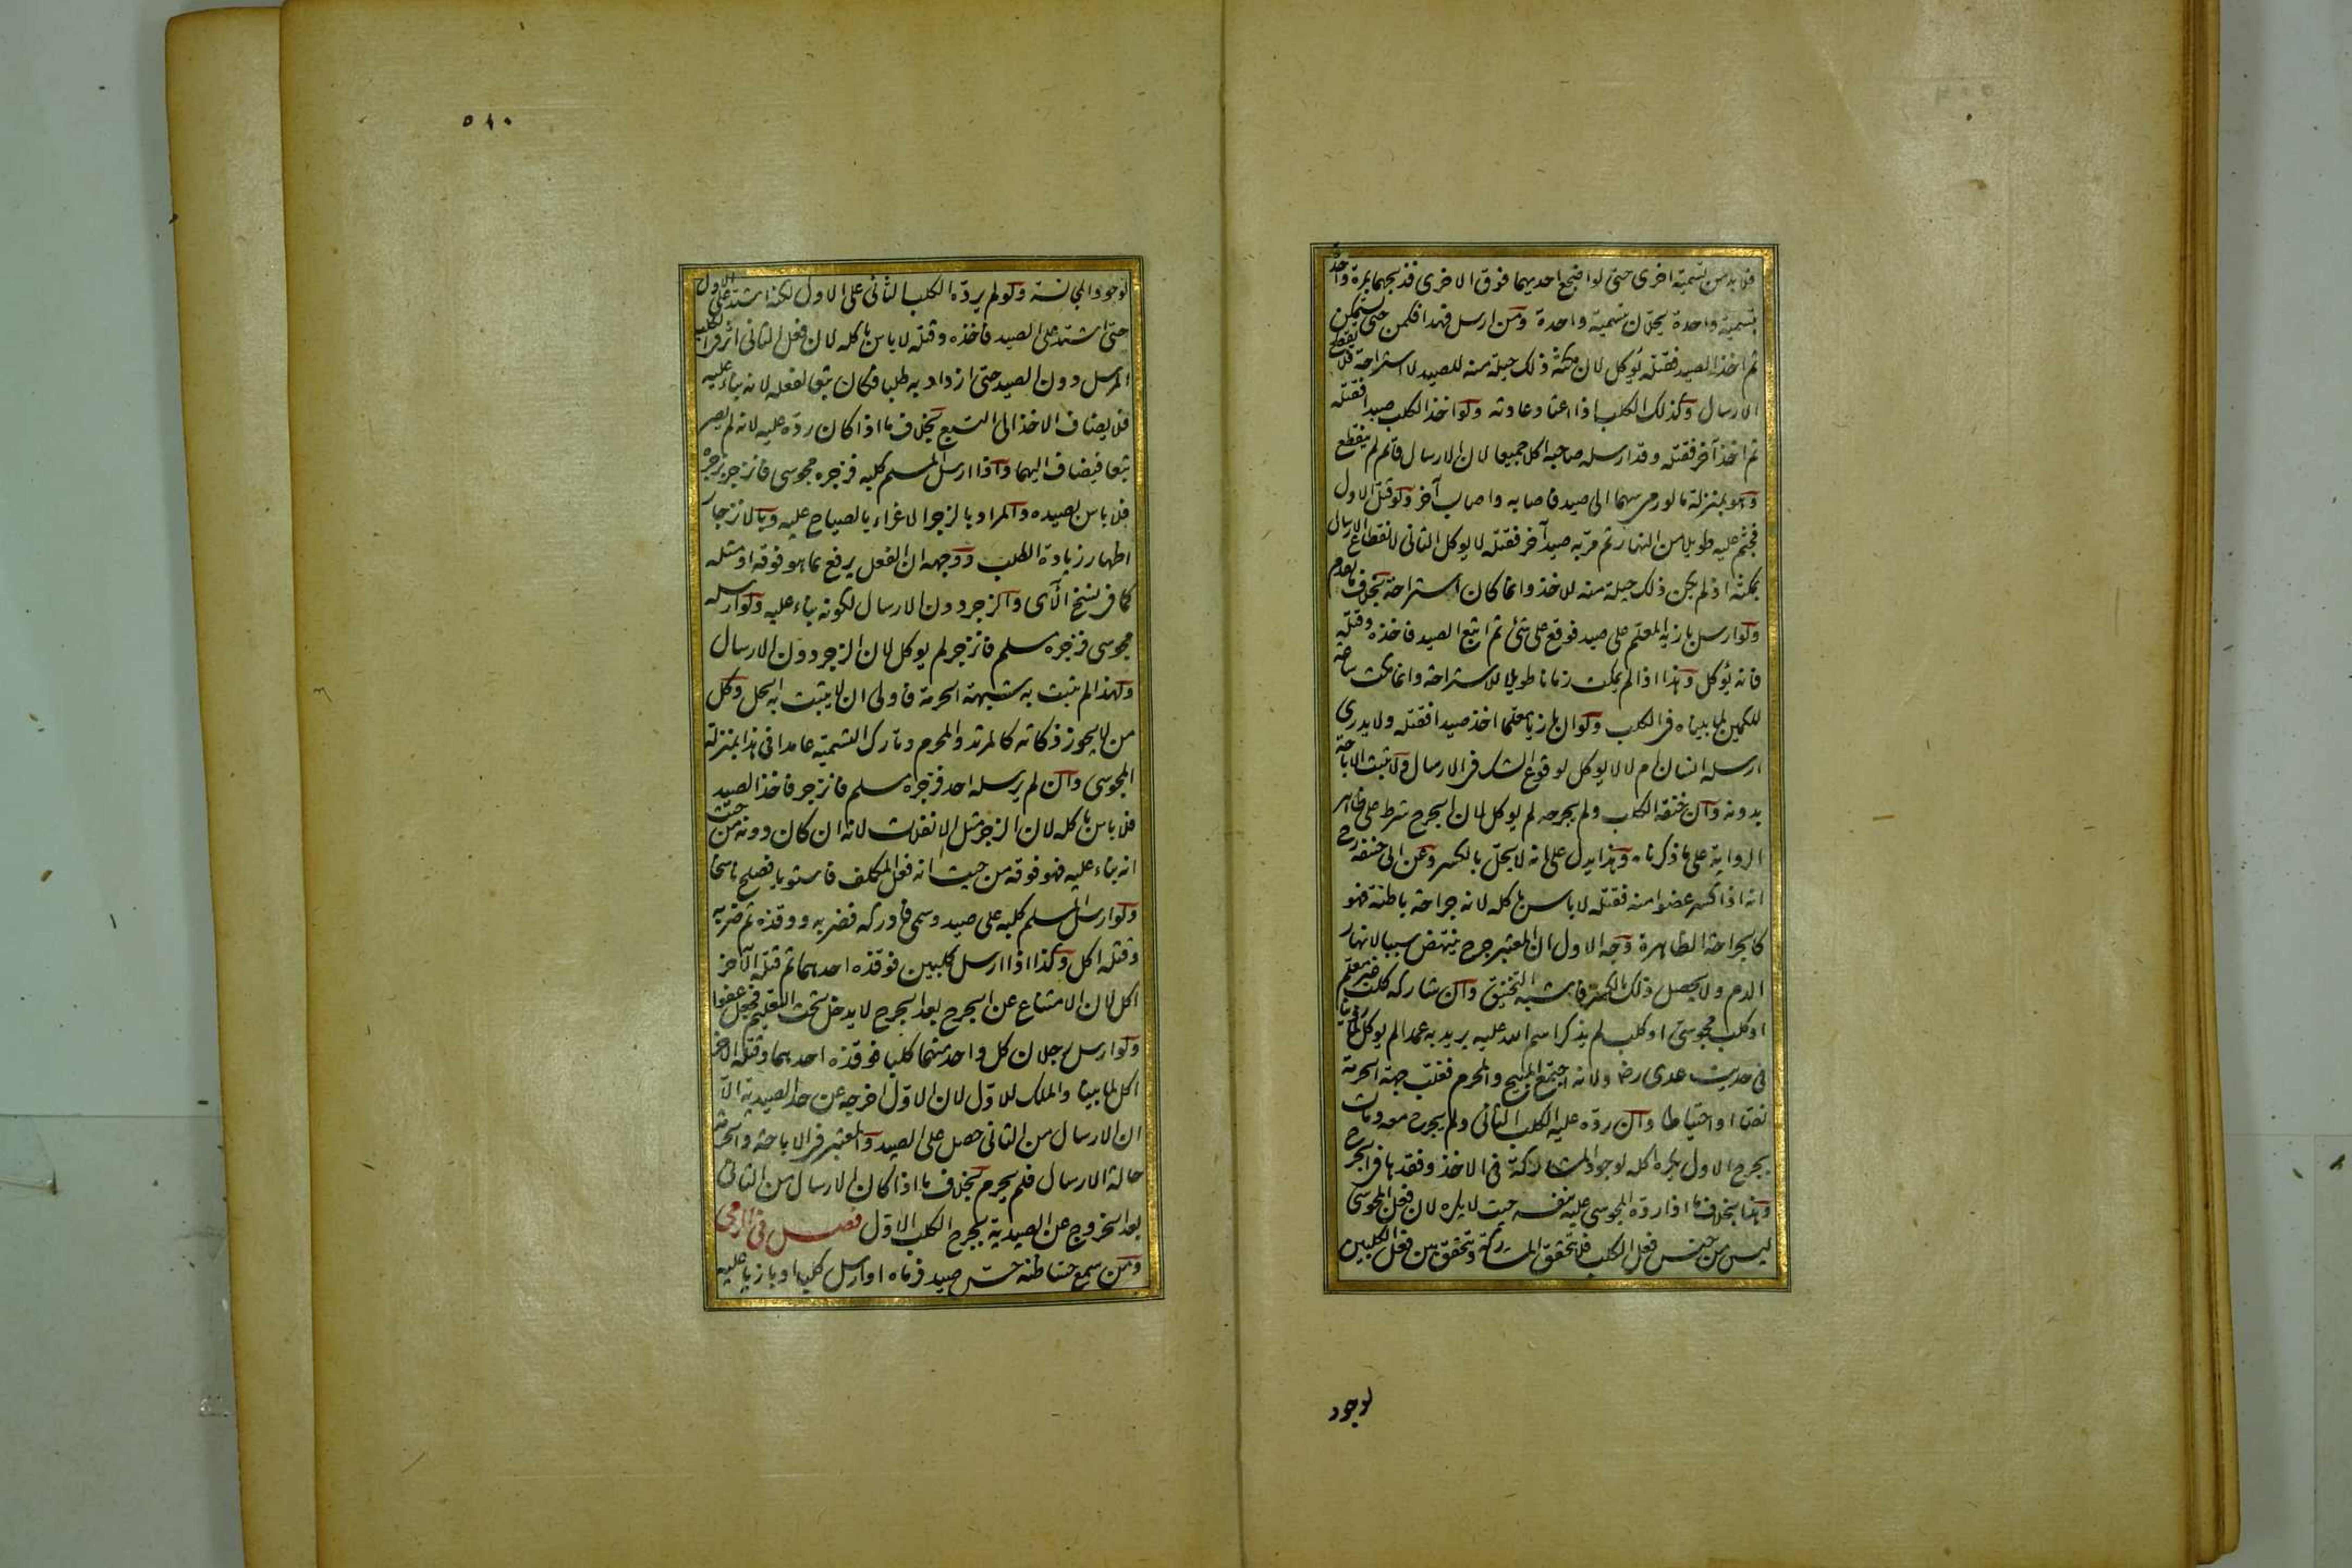 فلا بد من تسمية اخرى حتى لو اضجع احديهما فوق الاخرى فذبحهما بمرة واحدة
بتسمية واحدة يحلان بتسمية واحدة ومن ارسل فهدا فكمن حتى يستمكن
ثم اخذ الصيد فقتله يؤكل لان مكثه ذلك حيلة منه للصيد لا استراحة فلا يقطع
الارسال وكذلك الكلب اذا اعتاد عادته ولو اخذ الكلب صيدا فقتله
ثم اخذ آخر فقتله وقد ارسله صاحبه اكلا جميعا لان الارسال قائم لم ينقطع
وهو بمنزلة ما لو رمى سهما الى صيد فاصابه واصاب آخر ولو قتل الاول
فجثم عليه طويلا من النهار ثم مر به صيد آخر فقتله لا يوكل الثاني لانقطاع الارسال
بمكثه اذ لم يكن ذلك حيلة منه للاخذ وانما كان استراحة بخلاف ما تقدم
ولو ارسل بازيه المعلم على صيد فوقع على شئ ثم اتبع الصيد فاخذه وقتله
فانه يؤكل وهذا اذا لم يمكث زمانا طويلا للاستراحة وانما مكث ساعة
للكمين لما بيناه في الكلب ولو ان بازيا معلما اخذ صيدا فقتله ولا يدرى
ارسله انسان ام لا لا يوكل لوقوع الشك في الارسال ولا تثبت الاباحة
بدونه وان خنقه الكلب ولم يجرحه لم يوكل لان الجرح شرط على ظاهر
الرواية على ما ذكرناه وهذا يدل على انه لا يحل بالكسر وعن ابى حنيفة رح
انه اذا كسر عضوا منه فقتله لا باس باكله لانه جراحة باطنة فهو
كالجراحة الظاهرة وجه الاول ان المعتبر جرح ينتهض سببا لانهار
الدم ولا يحصل ذلك بالكسر فاشبه التخنيق وان شاركه كلب غير معلم
او كلب مجوسى او كلب لم يذكر اسم الله عليه يريد به عمدا لم يوكل لما روينا
فى حديث عدى رض ولانه اجتمع المبيح والمحرم فغلب جهة الحرمة
نصا او احتياطا وان رده عليه الكلب الثانى ولم يجرح معه ومات
بجرح الاول يكره اكله لوجود المشاركة فى الاخذ وفقدها فى الجرح
وهذا بخلاف ما اذا رده المجوسى عليه بنفسه حيث لا يكره لان فعل المجوسى
ليس من جنس فعل الكلب فلا تتحقق المشاركة وتتحقق بين فعل الكلبين
لوجود
٥١٠
لوجود المجانسة ولو لم يرده الكلب الثانى على الاول لكنه اشتد على الاول
حتى اشتد على الصيد فاخذه وقتله لا باس باكله لان فعل الثانى اثر فى الكلب
المرسل دون الصيد حتى ازداد به طلبا فكان تبعا لفعله لانه بناء عليه
فلا يضاف الاخذ الى التبع بخلاف ما اذا كان رده عليه لانه لم يصر
تبعا فيضاف اليهما واذا ارسل المسلم كلبه فزجره مجوسى فانزجر بزجره
فلا باس بصيده والمراد بالزجر الاغراء بالصياح عليه وبالانزجار
اظهار زيادة الطلب ووجهه ان الفعل يرفع بما هو فوقه او مثله
كما فى نسخ الآى والزجر دون الارسال لكونه بناء عليه ولو ارسله
مجوسى فزجره مسلم فانزجر لم يوكل لان الزجر دون الارسال
ولهذا لم تثبت به شبهة الحرمة فاولى ان لا يثبت به الحل وكل
من لا يجوز ذكاته كالمرتد والمحرم وتارك التسمية عامدا فى هذا بمنزلة
المجوسى وان لم يرسله احد فزجره مسلم فانزجر فاخذ الصيد
فلا باس باكله لان الزجر مثل الانفلات لانه ان كان دونه من حيث
انه بناء عليه فهو فوقه من حيث انه فعل المكلف فاستويا فصلح ناسخا
ولو ارسل المسلم كلبه على صيد وسمى فادركه فضربه ووقذه ثم ضربه
وقتله اكل وكذا اذا ارسل كلبين فوقذه احدهما ثم قتله الآخر
اكل لان الامتناع عن الجرح بعد الجرح لا يدخل تحت التعليم فجعل عفوا
ولو ارسل رجلان كل واحد منهما كلبا فوقذه احدهما وقتله الآخر
اكل لما بينا والملك للاول لان الاول اخرجه عن حد الصيدية الا
ان الارسال من الثانى حصل على الصيد والمعتبر فى الاباحة والحرمة
حالة الارسال فلم يحرم بخلاف ما اذا كان الارسال من الثانى
بعد الخروج عن الصيدية بجرح الكلب الاول فصل فى الرمى
ومن سمع حسا ظنه حس صيد فرماه او ارسل كلبا او بازيا عليه